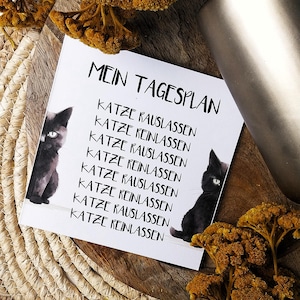 MEIN TAGESPLAN
KATZE RAUSLASSEN
KATZE REINLASSEN
KATZE RAUSLASSEN
KATZE REINLASSEN
KATZE RAUSLASSEN
KATZE REINLASSEN
KATZE RAUSLASSEN
KATZE REINLASSEN